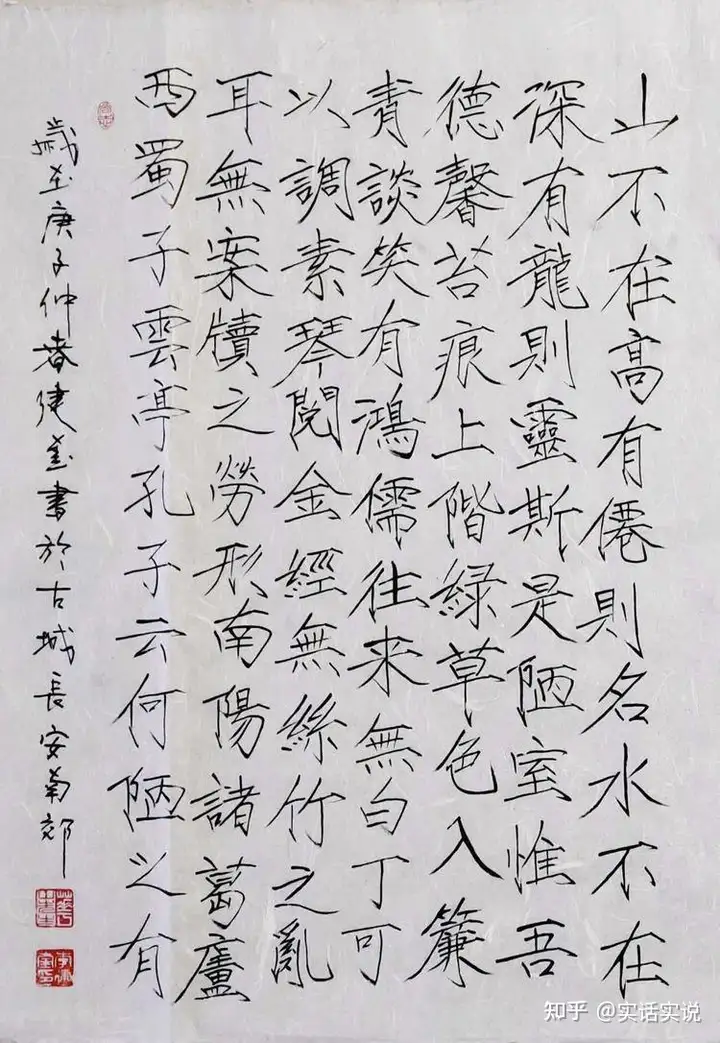 山不在高有僊則名水不在
深有龍則靈斯是陋室惟吾
德馨苔痕上階緑草色入簾
青談笑有鴻儒往来無白丁可
以調素琴閱金經無絲竹之亂
耳無案牘之勞形南陽諸葛廬
西蜀子雲亭孔子云何陋之有
歲在庚子仲春建書於古城長安南郊
知乎 @实话实说